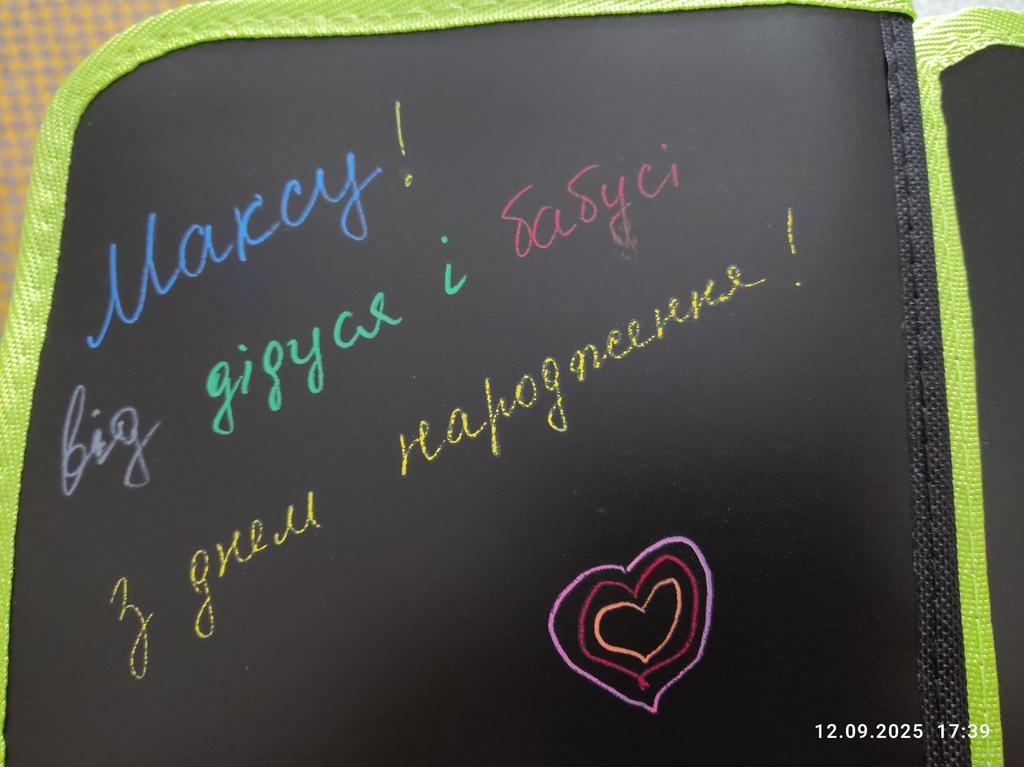 Максу!
від дідуся і бабусі
з днем народження!
12.09.2025 17:39